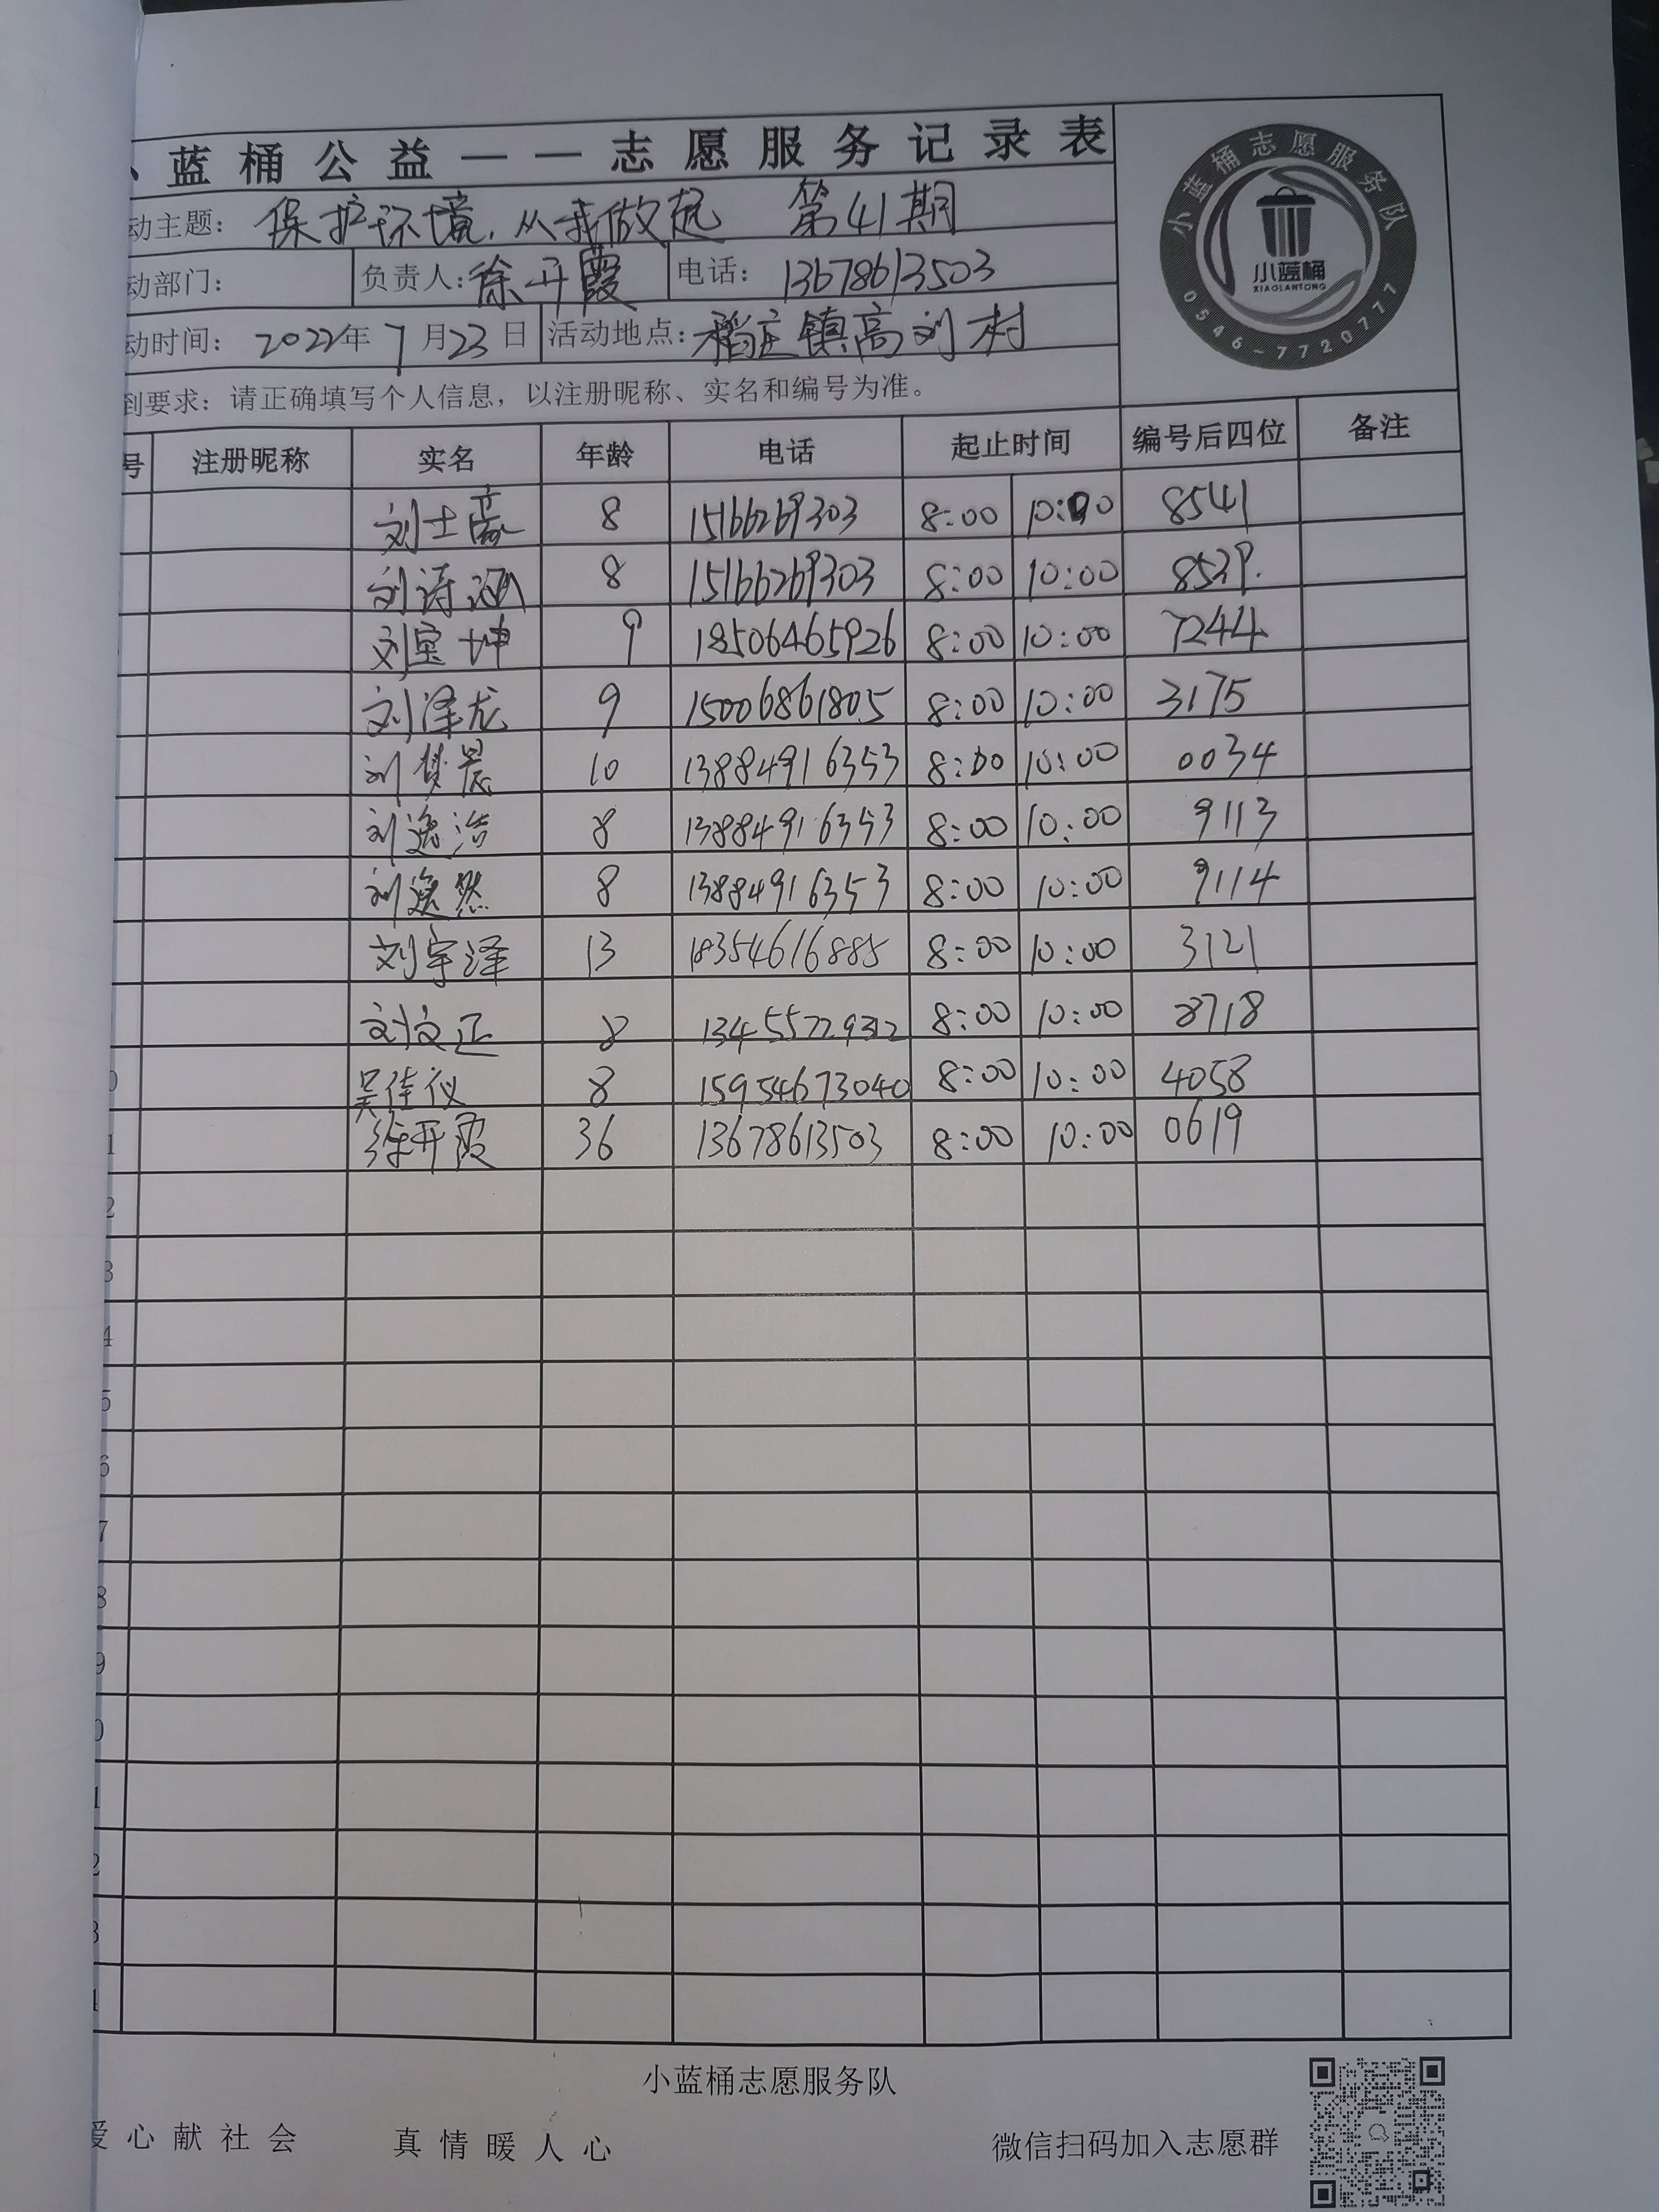 小蓝桶公益——志愿服务记录表
动主题：保护环境，从我做起 第41期
动部门： 负责人：徐开霞 电话：13678613503
动时间：2022年7月23日 活动地点：稻庄镇高刘村
到要求：请正确填写个人信息，以注册昵称、实名和编号为准。
小蓝桶志愿服务队
小蓝桶
XIAOLANTONG
0546-7720777
号 注册昵称 实名 年龄 电话 起止时间 编号后四位 备注
刘士豪 8 15166269303 8:00 10:00 8541
刘诗涵 8 15166269303 8:00 10:00 8539.
刘宝坤 9 18506465926 8:00 10:00 7244
刘泽龙 9 15006861805 8:00 10:00 3175
刘梦晨 10 13884916353 8:00 10:00 0034
刘逸浩 8 13884916353 8:00 10:00 9113
刘逸然 8 13884916353 8:00 10:00 9114
刘宇泽 13 18354616885 8:00 10:00 3121
刘文正 8 13455729312 8:00 10:00 8718
0 吴佳仪 8 15954673040 8:00 10:00 4058
1 徐开霞 36 13678613503 8:00 10:00 0619
2
3
4
5
6
7
8
9
0
1
2
3
4
小蓝桶志愿服务队
爱心献社会 真情暖人心 微信扫码加入志愿群